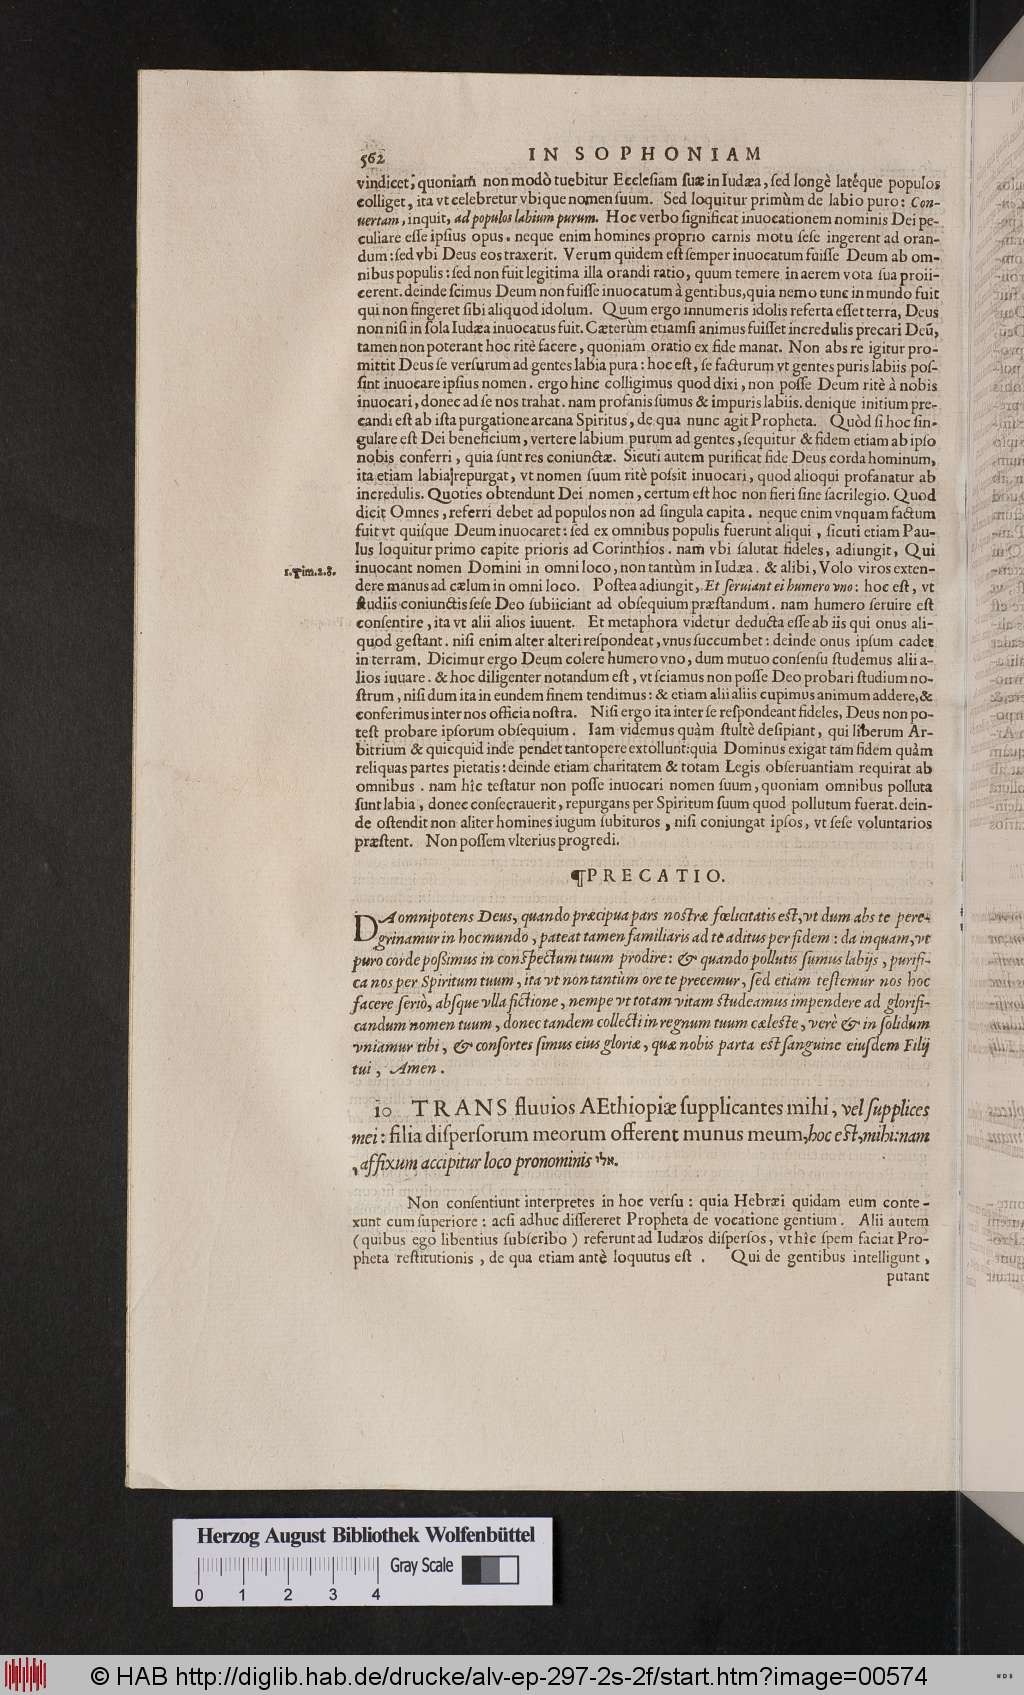 562 IN SOPHONIAM
vindicet, quoniam̃ non modò tuebitur Ecclesiam suæ in Iudæa, sed longè latéque populos
colliget, ita vt celebretur vbique nomen suum. Sed loquitur primùm de labio puro: Con-
uertam, inquit, ad populos labium purum. Hoc verbo significat inuocationem nominis Dei pe-
culiare esse ipsius opus. neque enim homines proprio carnis motu sese ingerent ad oran-
dum: sed vbi Deus eos traxerit. Verum quidem est semper inuocatum fuisse Deum ab om-
nibus populis: sed non fuit legitima illa orandi ratio, quum temere in aerem vota sua proii-
cerent. deinde scimus Deum non fuisse inuocatum à gentibus, quia nemo tunc in mundo fuit
qui non fingeret sibi aliquod idolum. Quum ergo innumeris idolis referta esset terra, Deus
non nisi in sola Iudæa inuocatus fuit. Cæterùm etiamsi animus fuisset incredulis precari Deũ,
tamen non poterant hoc ritè facere, quoniam oratio ex fide manat. Non abs re igitur pro-
mittit Deus se versurum ad gentes labia pura: hoc est, se facturum vt gentes puris labiis pos-
sint inuocare ipsius nomen. ergo hinc colligimus quod dixi, non posse Deum ritè à nobis
inuocari, donec ad se nos trahat. nam profanis sumus & impuris labiis. denique initium pre-
candi est ab ista purgatione arcana Spiritus, de qua nunc agit Propheta. Quòd si hoc sin-
gulare est Dei beneficium, vertere labium purum ad gentes, sequitur & fidem etiam ab ipso
nobis conferri, quia sunt res coniunctæ. Sicuti autem purificat fide Deus corda hominum,
ita etiam labia repurgat, vt nomen suum ritè possit inuocari, quod alioqui profanatur ab
incredulis. Quoties obtendunt Dei nomen, certum est hoc non fieri sine sacrilegio. Quod
dicit Omnes, referri debet ad populos non ad singula capita. neque enim vnquam factum
fuit vt quisque Deum inuocaret: sed ex omnibus populis fuerunt aliqui, sicuti etiam Pau-
lus loquitur primo capite prioris ad Corinthios. nam vbi salutat fideles, adiungit, Qui
1.Tim.2.8. inuocant nomen Domini in omni loco, non tantùm in Iudæa. & alibi, Volo viros exten-
dere manus ad cælum in omni loco. Postea adiungit, Et seruiant ei humero vno: hoc est, vt
studiis coniunctis sese Deo subiiciant ad obsequium præstandum. nam humero seruire est
consentire, ita vt alii alios iuuent. Et metaphora videtur deducta esse ab iis qui onus ali-
quod gestant. nisi enim alter alteri respondeat, vnus succumbet: deinde onus ipsum cadet
in terram. Dicimur ergo Deum colere humero vno, dum mutuo consensu studemus alii a-
lios iuuare. & hoc diligenter notandum est, vt sciamus non posse Deo probari studium no-
strum, nisi dum ita in eundem finem tendimus: & etiam alii aliis cupimus animum addere, &
conferimus inter nos officia nostra. Nisi ergo ita inter se respondeant fideles, Deus non po-
test probare ipsorum obsequium. Iam videmus quàm stultè desipiant, qui liberum Ar-
bitrium & quicquid inde pendet tantopere extollunt: quia Dominus exigat tam fidem quàm
reliquas partes pietatis: deinde etiam charitatem & totam Legis obseruantiam requirat ab
omnibus. nam hîc testatur non posse inuocari nomen suum, quoniam omnibus polluta
sunt labia, donec consecrauerit, repurgans per Spiritum suum quod pollutum fuerat. dein-
de ostendit non aliter homines iugum subituros, nisi coniungat ipsos, vt sese voluntarios
præstent. Non possem vlterius progredi.
¶PRECATIO.
DA omnipotens Deus, quando præcipua pars nostræ fœlicitatis est, vt dum abs te pere-
grinamur in hoc mundo, pateat tamen familiaris ad te aditus per fidem: da inquam, vt
puro corde possimus in conspectum tuum prodire: & quando pollutis sumus labijs, purifi-
ca nos per Spiritum tuum, ita vt non tantùm ore te precemur, sed etiam testemur nos hoc
facere seriò, absque vlla fictione, nempe vt totam vitam studeamus impendere ad glorifi-
candum nomen tuum, donec tandem collecti in regnum tuum cæleste, verè & in solidum
vniamur tibi, & consortes simus eius gloriæ, quæ nobis parta est sanguine eiusdem Filij
tui, Amen.
10 TRANS fluuios AEthiopiæ supplicantes mihi, vel supplices
mei: filia dispersorum meorum offerent munus meum, hoc est, mihi: nam
י affixum accipitur loco pronominis אלי.
Non consentiunt interpretes in hoc versu: quia Hebræi quidam eum conte-
xunt cum superiore: acsi adhuc dissereret Propheta de vocatione gentium. Alii autem
(quibus ego libentius subscribo) referunt ad Iudæos dispersos, vt hîc spem faciat Pro-
pheta restitutionis, de qua etiam antè loquutus est. Qui de gentibus intelligunt,
putant
Herzog August Bibliothek Wolfenbüttel
Gray Scale
0 1 2 3 4
© HAB http://diglib.hab.de/drucke/alv-ep-297-2s-2f/start.htm?image=00574